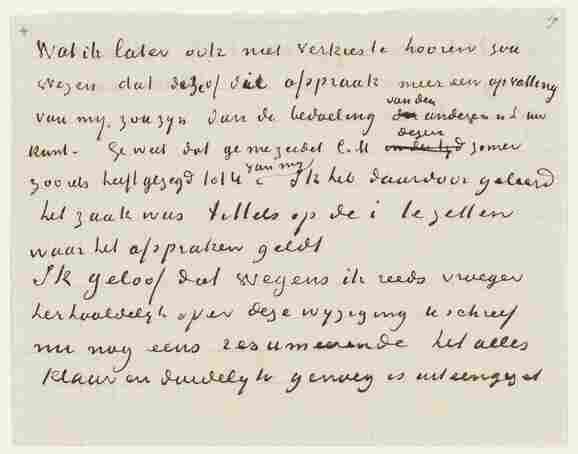 Wat ik later ook niet verkieste hooren zou
wezen dat deze of die afspraak meer een opvatting
van my zou zyn dan de bedoeling van den anderen is U nu
kunt. Ge weet dat ge me zeidet C.M dezen zomer
zoo iets heeft gezegd tot U van my. Ik heb daardoor geleerd
het zaak was tittels op de i te zetten
waar het afspraken geldt
Ik geloof dat wegens ik reeds vroeger
herhaaldelyk over deze wyziging u schreef
nu nog eens resumeerende het alles
klaar en duidelyk genoeg is uiteengezet